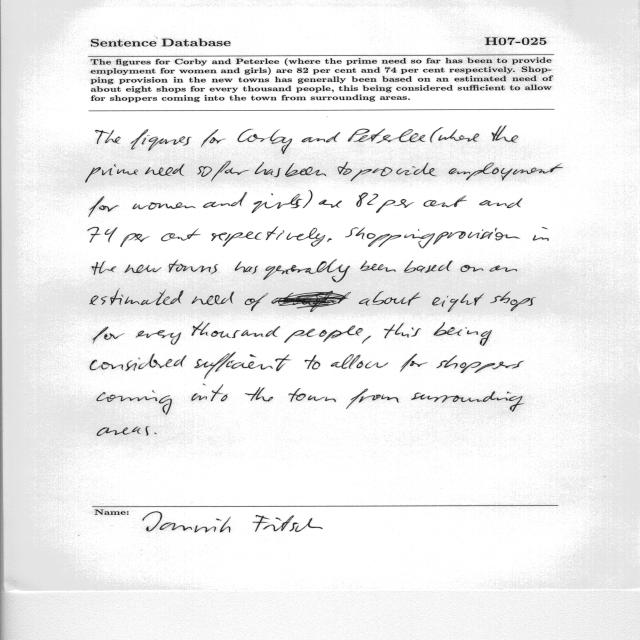 Sentence Database H07-025
The figures for Corby and Peterlee (where the prime need so far has been to provide
employment for women and girls) are 82 per cent and 74 per cent respectively. Shop-
ping provision in the new towns has generally been based on an estimated need of
about eight shops for every thousand people, this being considered sufficient to allow
for shoppers coming into the town from surrounding areas.
The figures for Corby and Peterlee (where the
prime need so far has been to provide employment
for women and girls) are 82 per cent and
74 per cent respectively. Shopping provision in
the new towns has generally been based on an
estimated need of about eight shops
for every thousand people, this being
considered sufficient to allow for shoppers
coming into the town from surrounding
areas.
Name: Jannik Fritsch